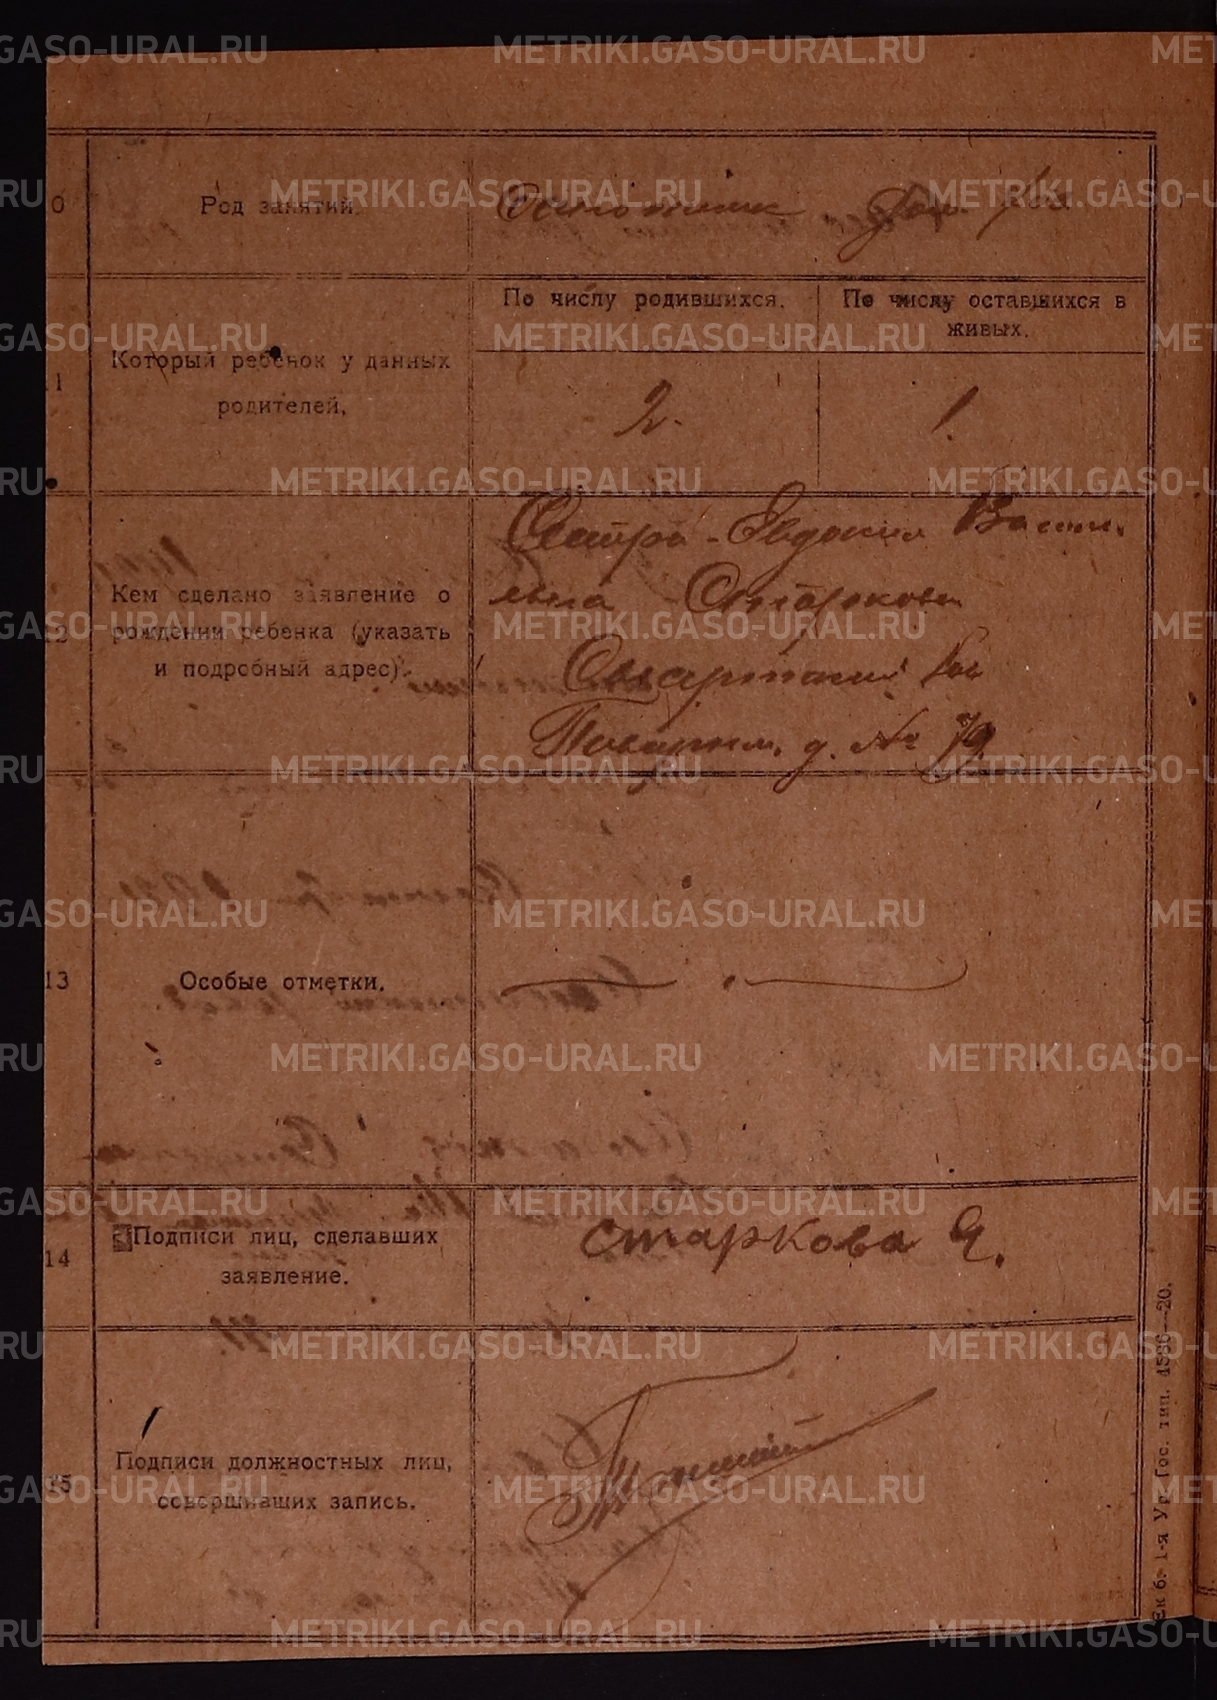 METRIKI.GASO-URAL.RU
Род занятий.
По числу родившихся.
По числу оставшихся в
живых.
Который ребенок у данных
родителей.
2.
1.
12
Кем сделано заявление о
рождении ребенка (указать
и подробный адрес).
Сестра - Евдокия Васи
льева Старкова
Сысертский
д. № 79
13
Особые отметки.
14
Подписи лиц, сделавших
заявление.
Старкова Я.
15
Подписи должностных лиц,
совершивших запись.
Екб. 1-я Ур Гос. тип. 4586—20.